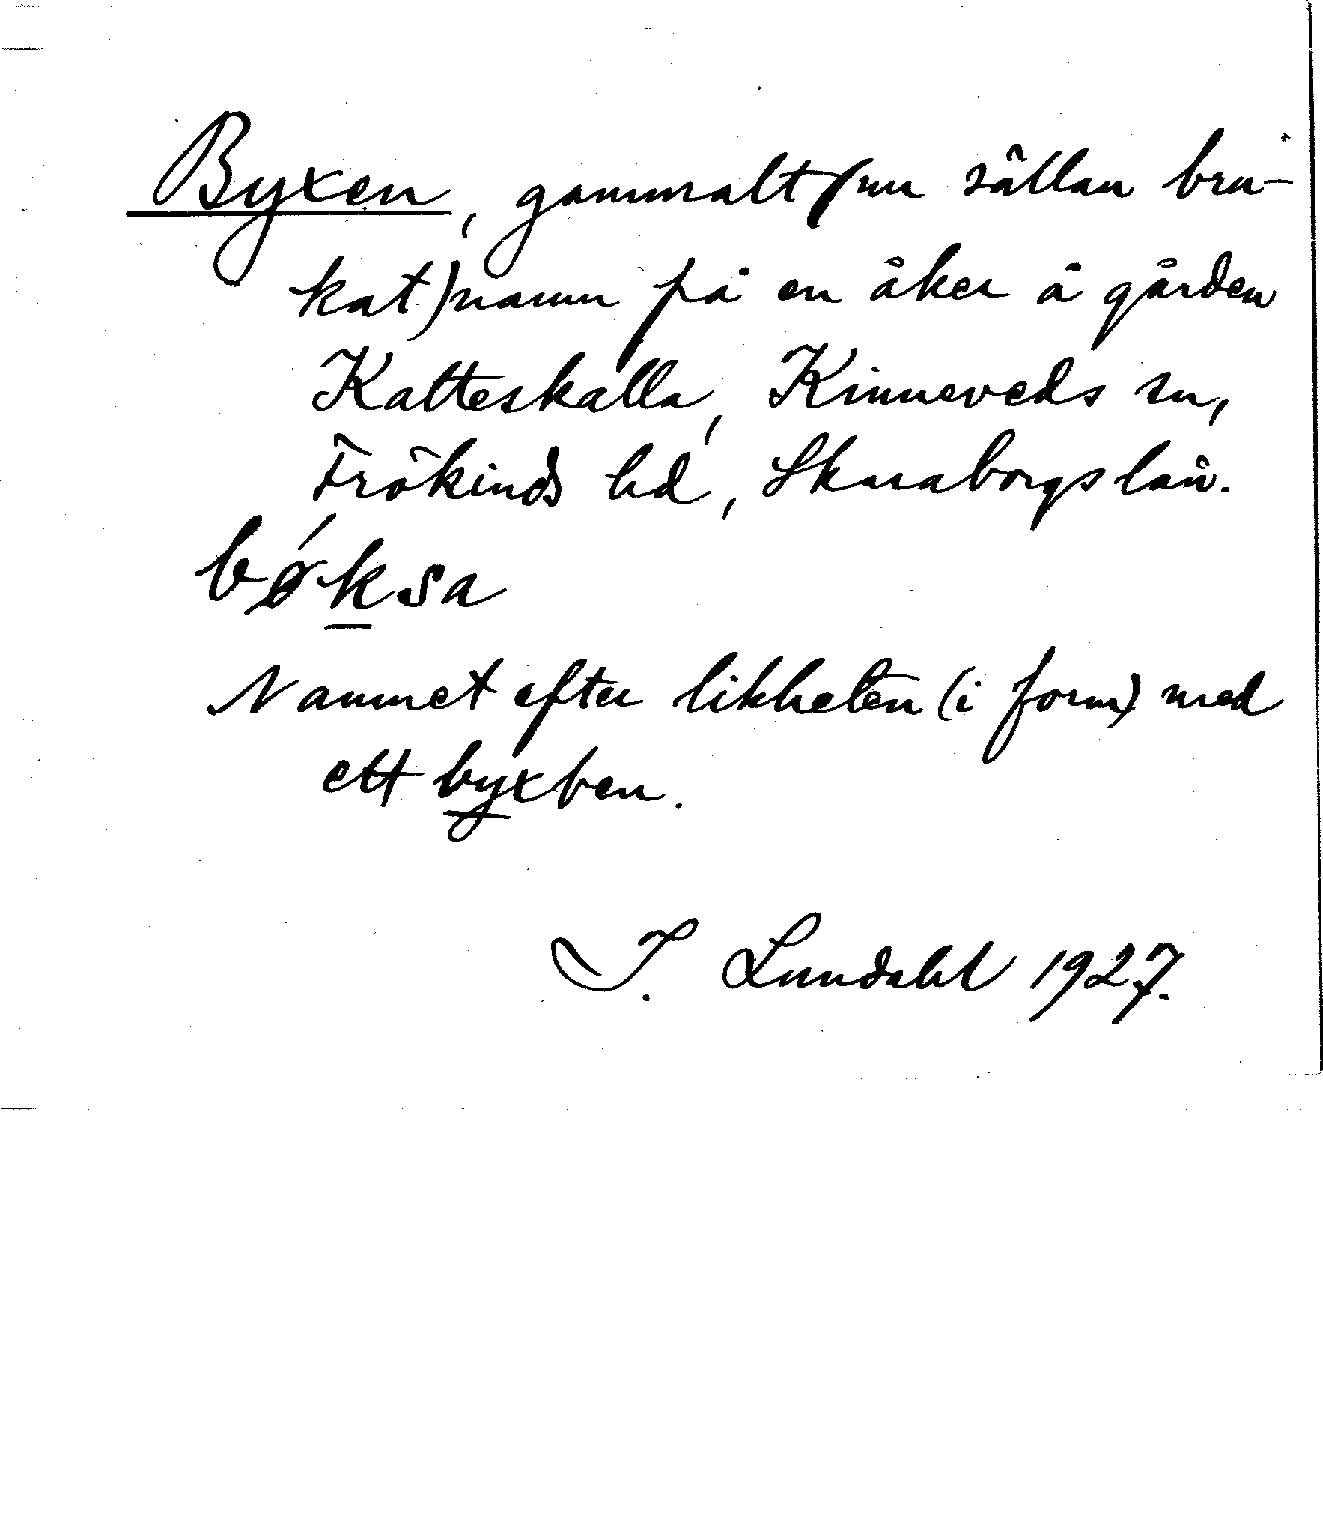 Byxen, gammalt (nu sällan bru-
kat) namn på en åker å gården
Katteskalla, Kinneveds sn,
Frökinds hd, Skaraborgs län.
bǿksa
Namnet efter likheten (i form) med
ett byxben.
I. Lundahl 1927.